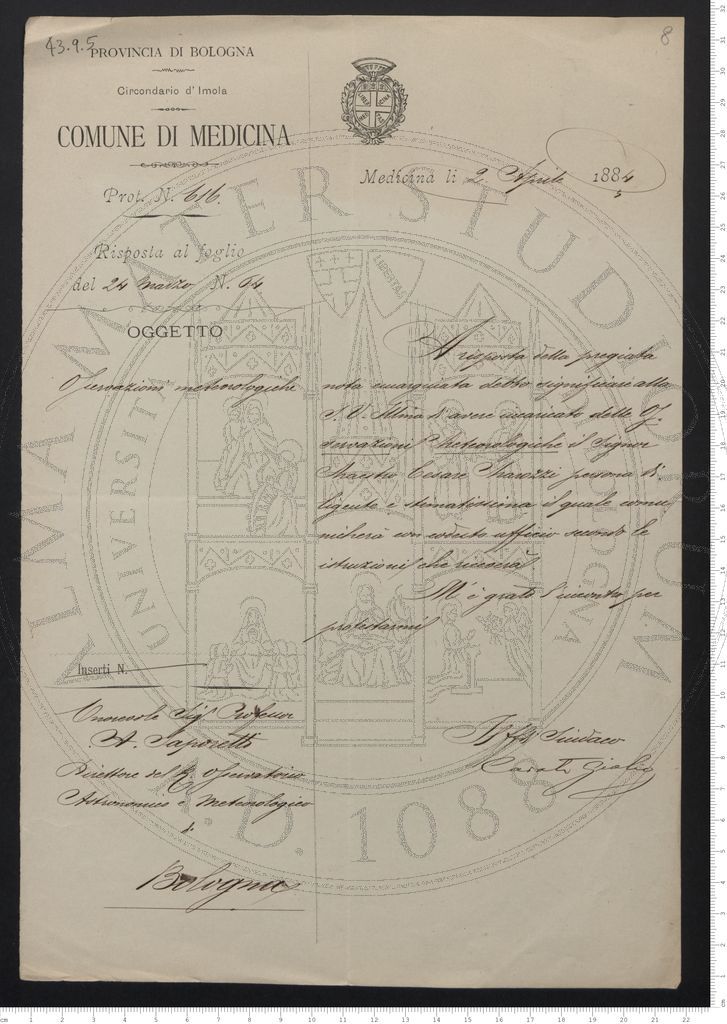 43.9.5
8
PROVINCIA DI BOLOGNA
Circondario d'Imola
COMUNE DI MEDICINA
Medicina li 2 Aprile 1884
5
Prot. N. 616.
Risposta al foglio
del 24 Marzo N. 94
OGGETTO
Osservazioni meteorologiche
A risposta della pregiata
nota emarginata debbo significare alla
S. V. Illma d'avere incaricato delle Os-
servazioni Meteorologiche il Signor
Maestro Cesare persona di
ligente e stimatissima il quale comu
nicherà con codesto ufficio secondo le
istruzioni che riceverà
M'è grato l'incontro per
protestarmi
Inserti N.
Onorevole Sigr Professor
A. Saporetti
Direttore del R. Osservatorio
Astronomico e Meteorologico
di
Bologna
Il ff di Sindaco
ALMA MATER STUDIORUM
UNIVERSITÀ
LIBERTAS
A.D. 1088